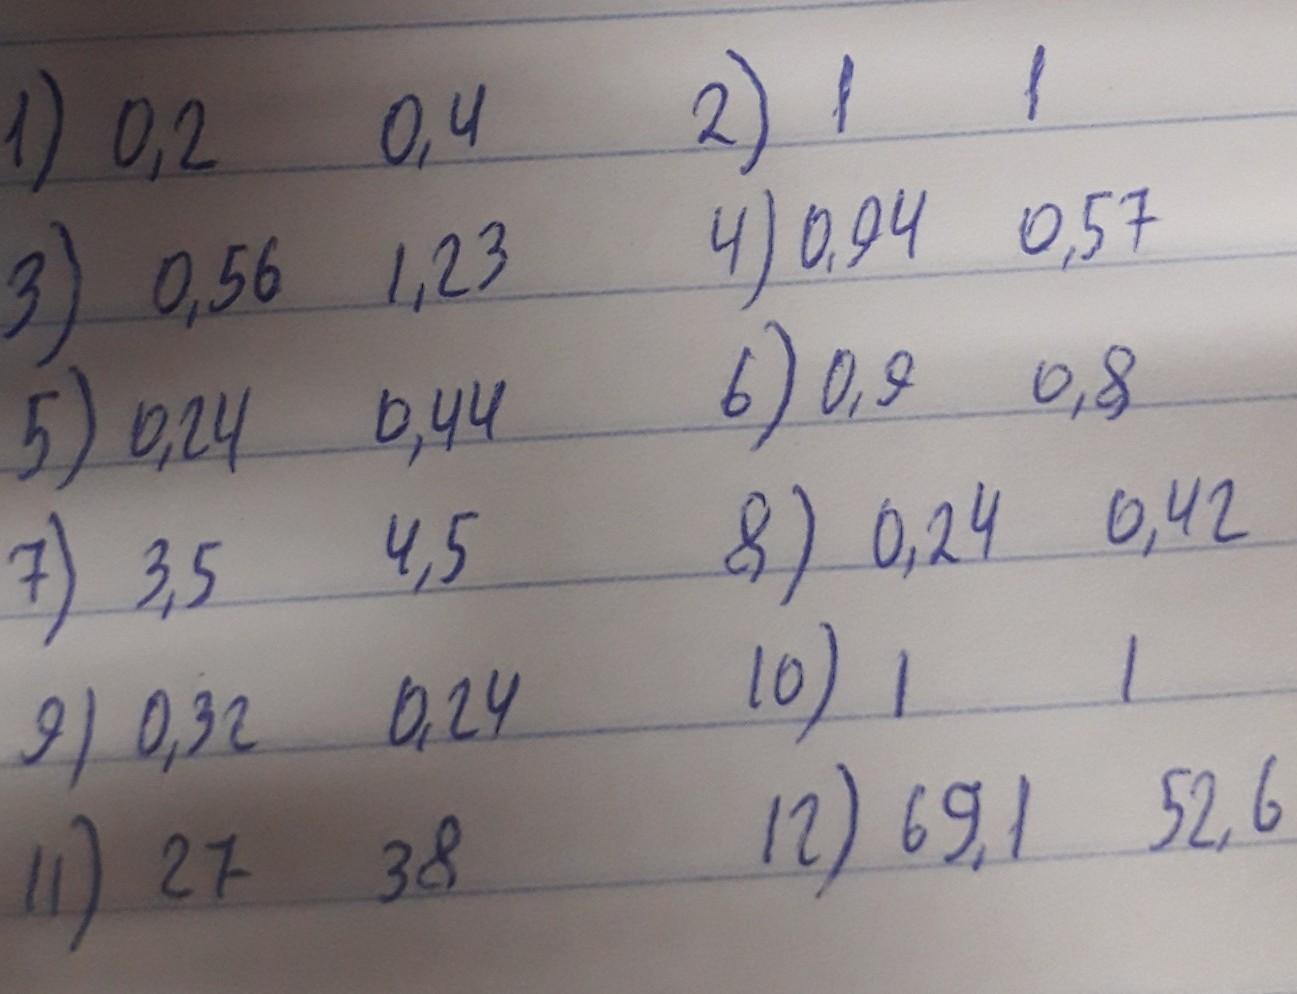 1) 0,2 0,4 2) 1 1
3) 0,56 1,23 4) 0,94 0,57
5) 0,24 0,44 6) 0,9 0,8
7) 3,5 4,5 8) 0,24 0,42
9) 0,32 0,24 10) 1 1
11) 27 38 12) 69,1 52,6